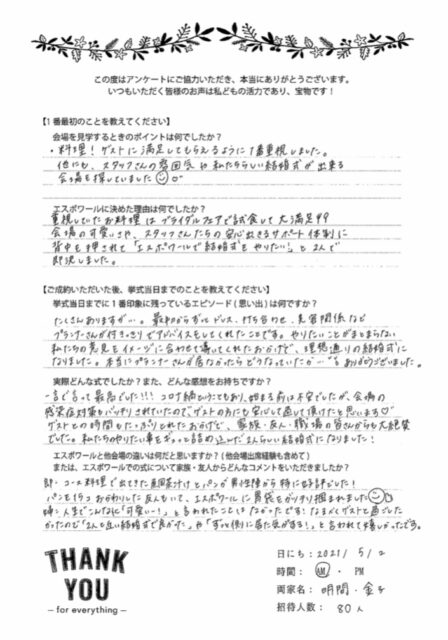 この度はアンケートにご協力いただき、本当にありがとうございます。
いつもいただく皆様のお声は私どもの活力であり、宝物です！
【1番最初のことを教えてください】
会場を見学するときのポイントは何でしたか？
・料理！ゲストに満足してもらえるように1番重視しました。
他にも、スタッフさんの雰囲気や私たちらしい結婚式が出来る
会場を探していました
エスポワールに決めた理由は何でしたか？
重視していたお料理はブライダルフェアで試食して大満足!!
会場の可愛いさや、スタッフさんたちの安心出来るサポート体制に
背中を押されて「エスポワールで結婚式をやりたい！」と2人で
即決しました。
【ご成約いただいた後、挙式当日までのことを教えてください】
挙式当日までに1番印象に残っているエピソード（思い出）は何ですか？
たくさんありますが…。最初からずっとドレス、打ち合わせ、見習関係など
プランナーさんが付きっきりでアドバイスをしてくれたことです。やりたいことがまとまらない
私たちの意見をイメージに合わせて導いてくれたおかげで、理想通りの結婚式に
なりました。本当にプランナーさんが居なかったらどうなっていたか…ありがとうございました。
実際どんな式でしたか？また、どんな感想をお持ちですか？
一言で言って最高でした!!! コロナ禍ということもあり、始まる前は不安でしたが、会場の
感染症対策もバッチリされていたので、ゲストの方にも安心して過して頂けたと思います♡
ゲストとの時間もたっぷりとれたおかげで、家族・友人・職場の皆さんからも大絶賛
でした。私たちのやりたい事をぎゅっと詰め込んだ2人らしい結婚式になりました！
エスポワールと他会場の違いは何だと思いますか？（他会場出席経験も含めて）
または、エスポワールでの式について家族・友人からどんなコメントをいただきましたか？
即・コース料理で出てきた
パンを15コおかわりした友人もいて、エスポワールに胃袋をがっちり掴まれました
「可愛いー！」と言われたことはなかったです！なによりゲストと過ごした
かったので「2人と近い結婚式で良かった」や「ずっと側に居た気がする！」と言われて嬉しかったです。
THANK
YOU
— for everything —
日にち：2021/5/2
時間：AM・PM
両家名：明間・金子
招待人数：80人